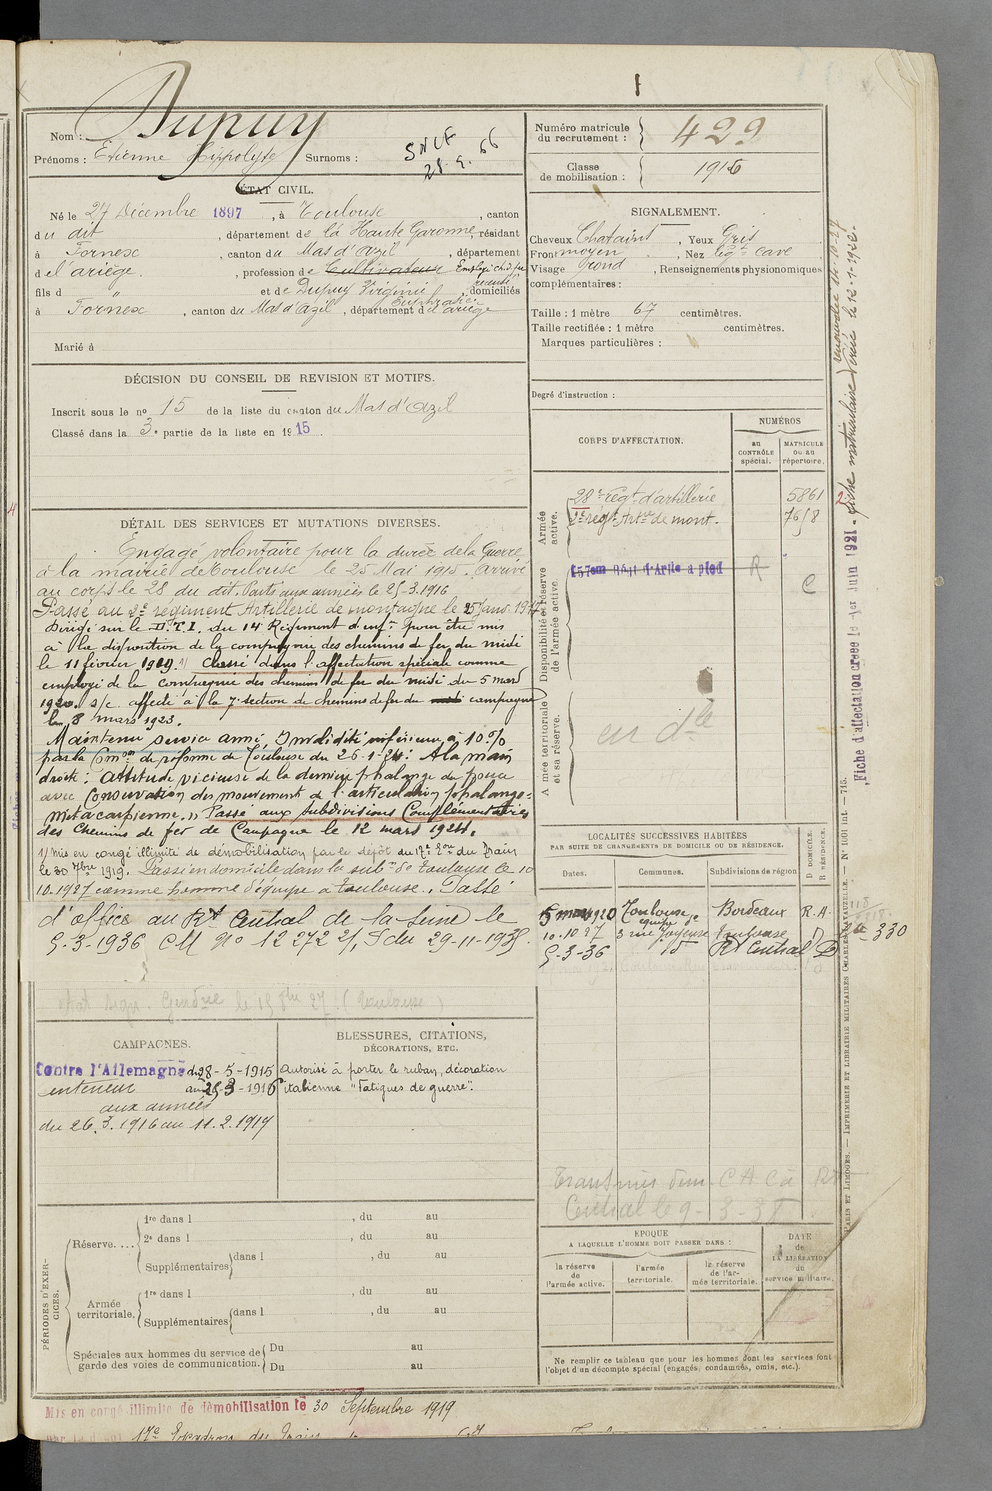 Nom : Dupuy
Prénoms : Etienne Hippolyte Surnoms :
SNCF
28.9.66
Numéro matricule du recrutement : 429
Classe de mobilisation : 1916
ÉTAT CIVIL.
Né le 27 Décembre 1897, à Toulouse, canton
du dit, département de la Haute Garonne, résidant
à Fornex, canton du Mas d'Azil, département
de l'ariège, profession de Cultivateur Employé ch. de fer
fils d " et de Dupuy Virginie Euphrasie, domiciliés
à Fornex, canton du Mas d'Azil, département de l'ariège
Marié à
SIGNALEMENT.
Cheveux Chatains, Yeux Gris
Front moyen, Nez légt cave
Visage rond, Renseignements physionomiques
complémentaires :
Taille : 1 mètre 67 centimètres.
Taille rectifiée : 1 mètre centimètres.
Marques particulières :
Degré d'instruction :
DÉCISION DU CONSEIL DE REVISION ET MOTIFS.
Inscrit sous le no 15 de la liste du canton du Mas d'Azil
Classé dans la 3e partie de la liste en 1915.
DÉTAIL DES SERVICES ET MUTATIONS DIVERSES.
Engagé volontaire pour la durée de la Guerre
à la mairie de Toulouse le 25 Mai 1915. Arrivé
au corps le 28 du dit. Parti aux armées le 25-3-1916
Passé au 2e régiment Artillerie de montagne le 25 Janv. 1917
Dirigé sur le D.T.I. du 14 Régiment d'inf. pour être mis
à la disposition de la compagnie des chemins de fer du midi
le 11 février 1919. 1) Classé dans l'affectation spéciale comme
employé de la compagnie des chemins de fer du midi du 5 mars
1920. s/c affecté à la 7e section de chemins de fer de campagne
le 8 mars 1923.
Maintenu service armé, Invalidité inférieure à 10 %
par la Comon de réforme de Toulouse du 26-1-24: A la main
droite: attitude vicieuse de la dernière phalange du pouce
avec conservation des mouvements de l'articulation phalango-
métacarpienne. Passé aux subdivisions Complémentaires
des Chemins de fer de Campagne le 12 mars 1924.
1) Mis en congé illimité de démobilisation par le dépôt du 17e Eon du Train
le 30 7bre 1919. Passé en domicile dans la subon de Toulouse le 10
10.1927 comme homme d'équipe à Toulouse. Passé
d'office au Rt Central de la Seine le
5-3-1936 CM No 12272 2/S du 29-11-1935
CORPS D'AFFECTATION.
NUMÉROS
au CONTRÔLE spécial.
MATRICULE ou au répertoire.
Armée active.
28e régt d'artillerie 5861
2e régt Artrie de mont. 7618
Disponibilité et réserve de l'armée active.
157eme Régt d'Artie a pied R
C
Armée territoriale et sa réserve.
en dle
LOCALITÉS SUCCESSIVES HABITÉES
PAR SUITE DE CHANGEMENTS DE DOMICILE OU DE RÉSIDENCE.
Dates. Communes. Subdivisions de région D. DOMICILE. R. RÉSIDENCE.
5 mars 1920 Toulouse Bordeaux R.A.
10.10 27 3 rue Joyeuse Toulouse D
5-3-36 id Rt Central D
330
Transmis dem. C A C à Rt
Central le 9-3-3
CAMPAGNES.
Contre l'Allemagne du 28-5-1915
intérieur au 25-3-1916
aux armées
du 26.3.1916 au 11.2.1919
BLESSURES, CITATIONS,
DÉCORATIONS, ETC.
Autorisé à porter le ruban, décoration
italienne "Fatigues de guerre".
PÉRIODES D'EXERCICES.
Réserve....
1re dans l , du au
2e dans l , du au
Supplémentaires dans l , du au
Armée territoriale.
1re dans l , du au
Supplémentaires dans l , du au
Spéciales aux hommes du service de garde des voies de communication.
Du au
Du au
ÉPOQUE
A LAQUELLE L'HOMME DOIT PASSER DANS :
la réserve de l'armée active.
l'armée territoriale.
la réserve de l'armée territoriale.
DATE de LA LIBÉRATION du service militaire.
Ne remplir ce tableau que pour les hommes dont les services font
l'objet d'un décompte spécial (engagés, condamnés, omis, etc.).
Mis en congé illimité de démobilisation le 30 Septembre 1919
17e Escadron du Train
Fiche d'affectation créée le 1er Juin 1921.
fiche matriculaire créée le 12-1-1926.
PARIS ET LIMOGES. — IMPRIMERIE ET LIBRAIRIE MILITAIRES CHARLES-LAVAUZELLE. — No 1001 int. — 715.